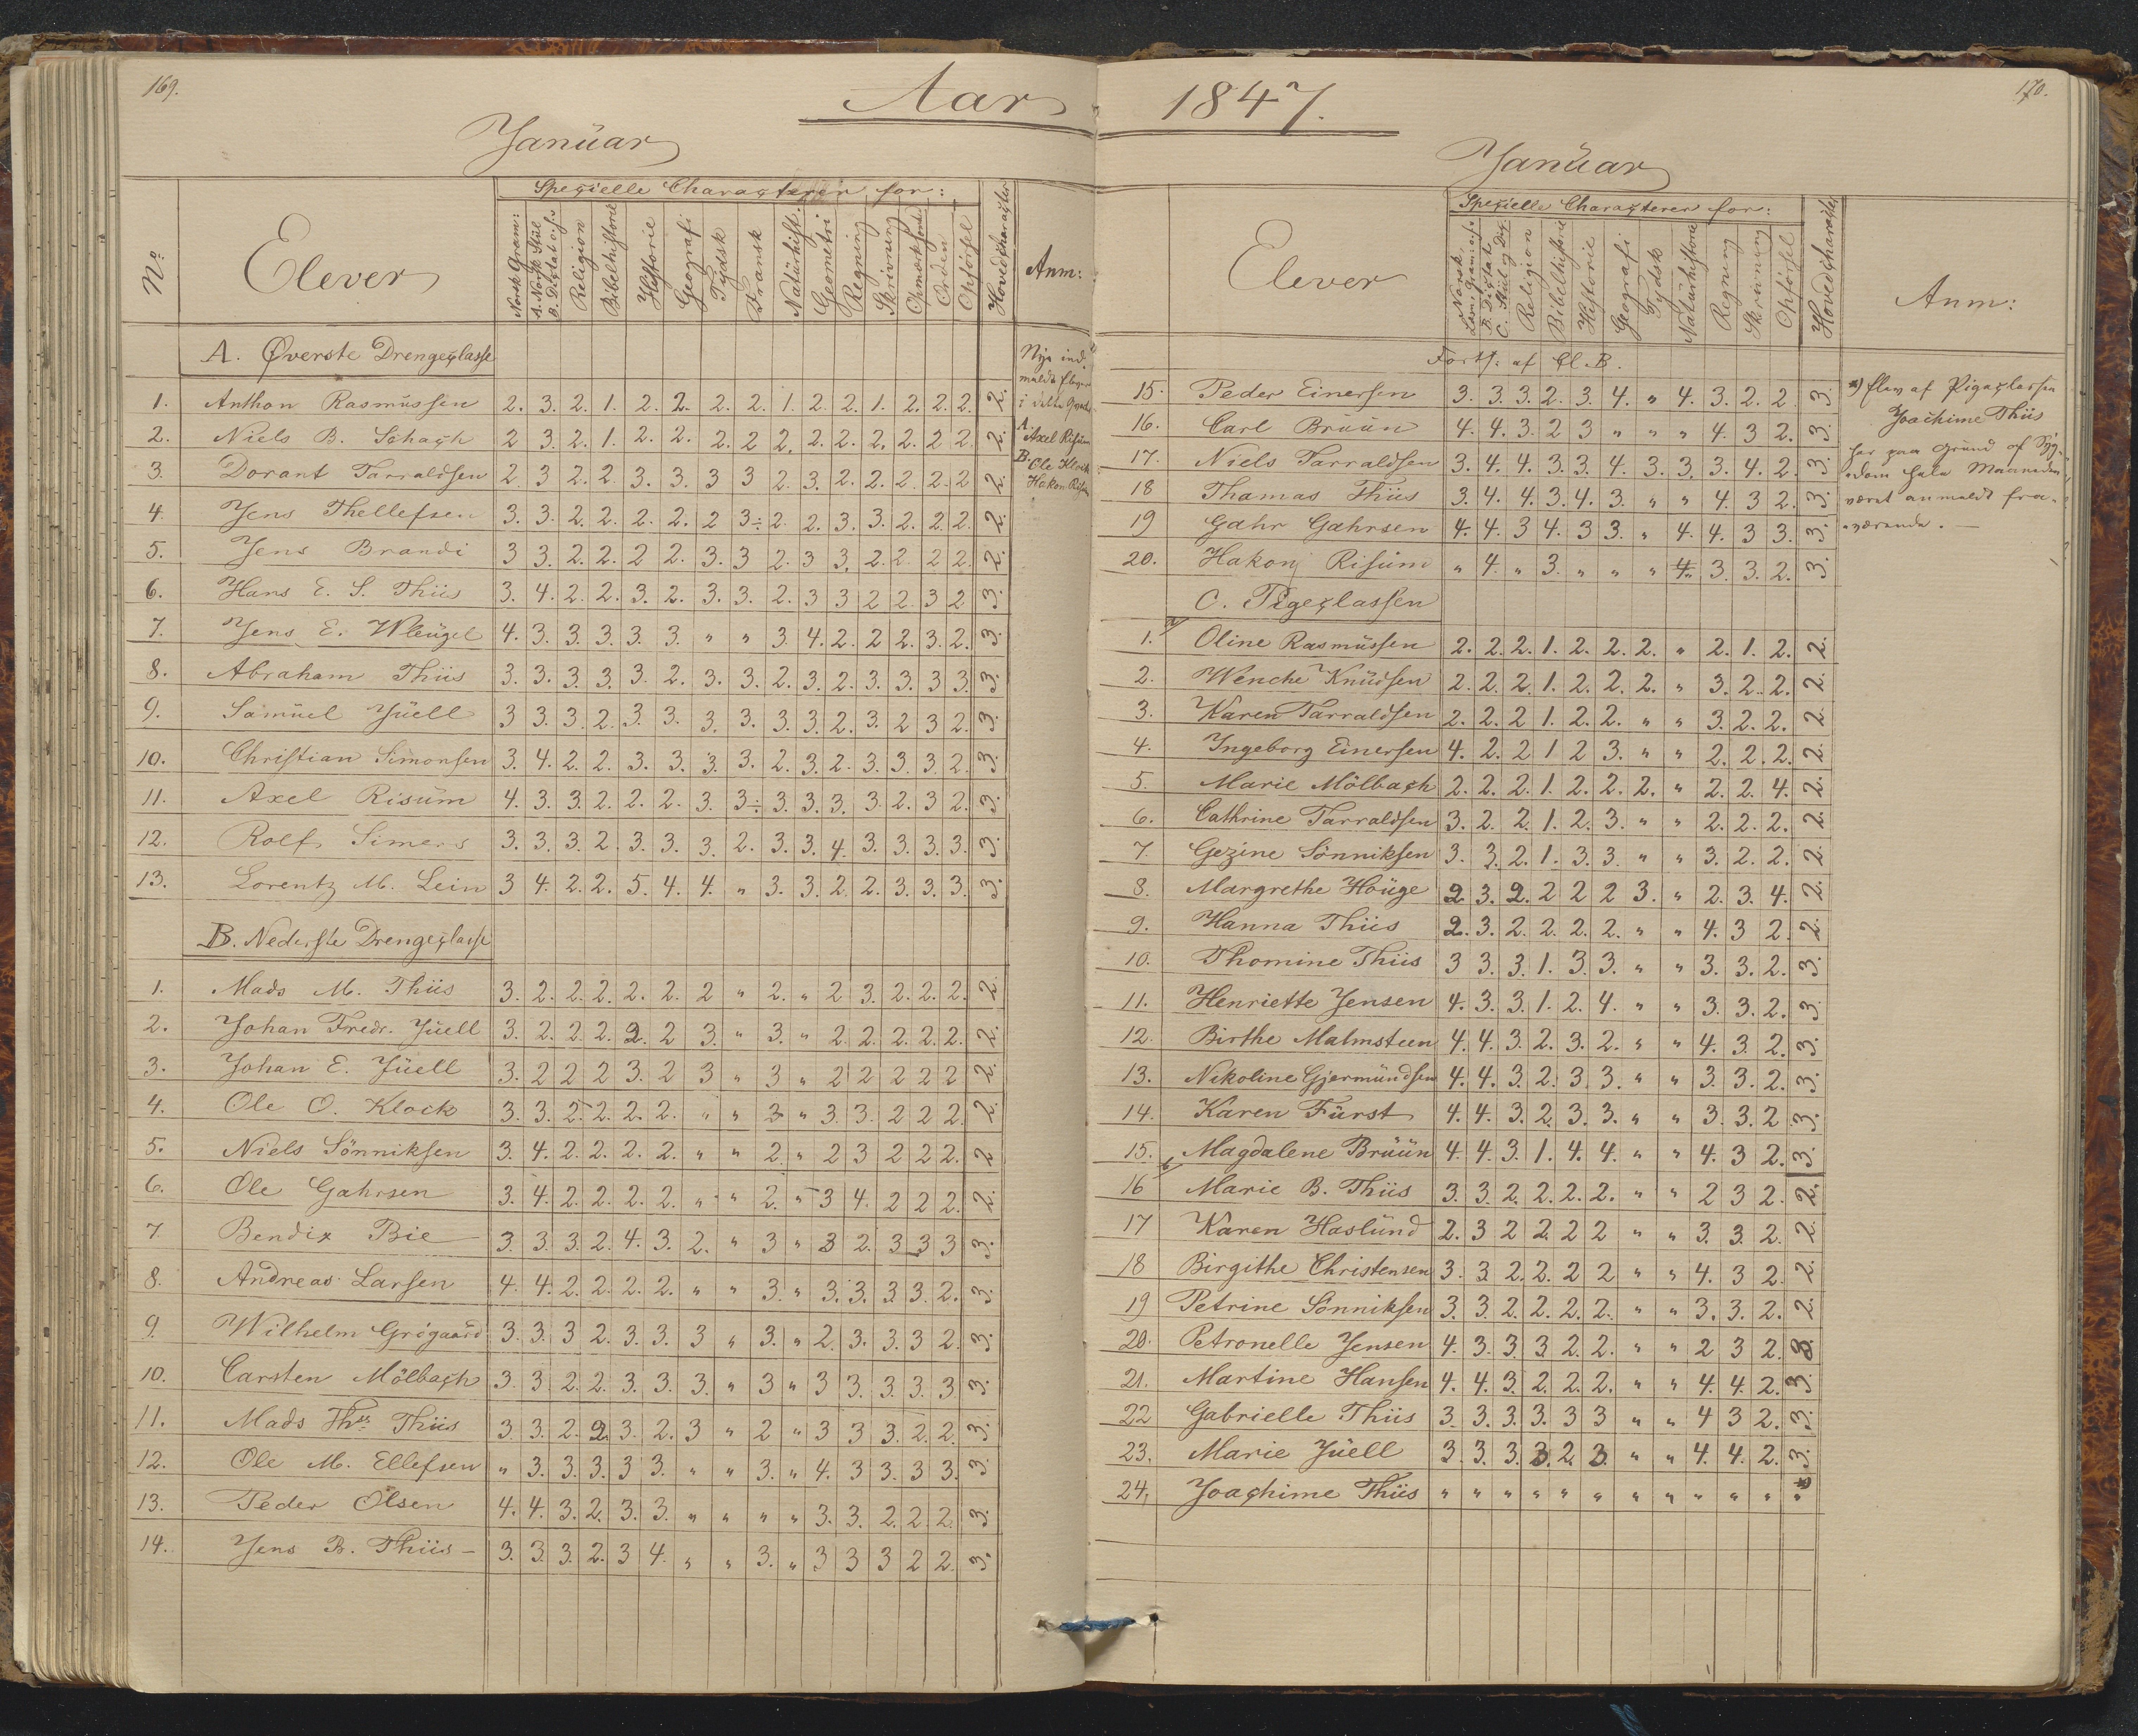 169.
Aar
Januar
Specielle Characterer for:
No
Elever
Norsk Gram:
A. Norsk Stiil
B. Dictat o.s.v
Religion
Bibelhistorie
Historie
Geografi
Tydsk
Fransk
Naturhist.
Geometri
Regning
Skrivning
Opmærksomhed
Orden
Opførsel
Hovedcharacter
Anm:
A. Øverste Drengeclasse
1. Anthon Rasmussen 2. 3. 2. 1. 2. 2. 2. 2. 1. 2. 2. 1. 2. 2. 2. 2.
2. Niels B. Schach 2 3. 2. 1. 2. 2. 2. 2 2. 2. 2. 2. 2. 2 2. 2.
3. Dorant Tarraldsen 2. 3 2. 2. 3. 3. 3 3 2. 3. 2. 2. 2. 2. 2 2.
4. Jens Thellefsen 3. 3. 2. 2. 2. 2. 2 3÷ 2. 2. 3. 3. 2. 2. 2. 2.
5. Jens Brandi 3 3. 2. 2. 2 2. 3. 3 2. 3 3. 2. 2. 2 2. 2.
6. Hans E. S. Thiis 3. 4. 2. 2. 3. 2. 3. 3. 2. 3 3 2 2. 3 2 3.
7. Jens E. Wleügel 4. 3. 3. 3. 3. 3. " " 3. 4. 2. 2 2. 3. 2. 3.
8. Abraham Thiis 3. 3. 3. 3. 3. 2. 3. 3. 2. 3. 2. 3. 3. 3 3. 3.
9. Samüel Jüell 3 3. 3. 2. 3. 3. 3. 3. 3. 3. 2. 3. 2 3 2. 3.
10. Christian Simonsen 3. 4. 2. 2. 3. 3. 3. 3. 2. 3. 2. 3. 3. 3. 2. 3.
11. Axel Risüm 4. 3. 3. 2. 2. 2. 3. 3÷ 3. 3. 3. 3. 2. 3 2. 3.
12. Rolf Simers 3. 3. 3. 2. 3. 3. 3. 2. 3. 3. 4. 3. 3. 3. 3. 3.
13. Lorentz M. Lein 3 4. 2. 2. 5. 4. 4. " 3. 3. 2. 2. 3. 3. 3. 3.
Nye ind-
meldte Elever
i dette
A.
Axel Risüm
B.
Ole Klock
Hakon Risüm
B. Nederste Drengeclasse
1. Mads M. Thiis 3. 2. 2. 2. 2. 2. 2 " 2. " 2 3. 2. 2. 2. 2.
2. Johan Fredr. Jüell 3. 2. 2. 2. 2. 2 3. " 3. " 2. 2. 2. 2. 2. 2.
3. Johan E. Jüell 3. 2 2 2 3. 2 3 " 3 " 2 2 2 2 2 2.
4. Ole O. Klock 3. 3. 2. 2. 2. 2. " " 3 " 3. 3. 2 2 2. 2.
5. Niels Sönniksen 3. 4. 2. 2. 2. 2. " " 2. " 2 3 2 2 2. 2
6. Ole Gahrsen 3. 4. 2. 2. 2. 2. " " 2. " 3 4. 2 2 2. 2.
7. Bendix Bie 3. 3. 3. 2. 4. 3. 2. " 3 " 3 2. 3 3 3 3.
8. Andreas Larsen 4. 4. 2. 2. 2. 2. " " 3. " 3. 3. 3 3. 2. 3.
9. Wilhelm Grögaard 3. 3. 3 2. 3. 3. 3 " 3. " 2. 3. 3. 3 2. 3.
10. Carsten Mölbach 3. 3 2. 2. 3. 3. 3. " 3 " 3 3. 3. 3. 3 3.
11. Mads Ths. Thiis 3. 3. 2. 2. 3. 2. 3 " 2 " 3 3 3. 2. 2. 3.
12. Ole M. Ellefsen " 3. 3. 3. 3 3. " " 3. " 4. 3 3. 3 3. 3.
13. Peder Olsen 4. 4. 3. 2. 3. 3. " " " " 3. 3. 2. 2. 2. 3.
14. Jens B. Thiis 3. 3. 3. 2. 3 4. " " 3. " 3 3 3 2 2. 3.
170.
1847.
Januar
Elever
Specielle Characterer for:
Norsk,
Læsn, Gram: o.s.v
B. Dictat
C. Stiil og Dict.
Religion
Bibelhistorie
Historie
Geografi
Tydsk
Naturhistorie
Regning
Skrivning
Opførsel
Hovedcharacter
Anm:
Forts: af Cl. B.
15. Peder Einersen 3. 3. 3. 2. 3. 4. " 4. 3. 2. 2 3.
16. Carl Brüün 4. 4. 3. 2 3 " " " 4. 3 2. 3.
17. Niels Tarraldsen 3. 4. 4. 3. 3. 4. 3. 3. 3. 4. 2. 3.
18 Thamas Thiis 3. 4. 4. 3. 4. 3. " " 4. 3 2. 3.
19 Gahr Gahrsen 4. 4. 3 4. 3 3. " 4. 4. 3 3. 3.
20. Hakon Risüm " 4. " 3. " " " 4. 3 3. 2. 3.
*) Elev af Pigeclassen
Joachime Thiis
har paa Grund af Syg-
dom hele Maaneden
været anmeldt fra-
værende. —
C. Pigeclassen
1. Oline Rasmüssen 2. 2. 2. 1. 2. 2. 2. " 2. 1. 2. 2.
2. Wenche Knüdsen 2. 2. 2. 1. 2. 2. 2. " 3. 2. 2. 2.
3. Karen Tarraldsen 2. 2. 2 1. 2. 2. " " 3. 2. 2. 2.
4. Ingeborg Einersen 4. 2. 2 1 2 3. " " 2. 2. 2. 2.
5. Marie Mölbach 2. 2. 2. 1. 2. 2. 2. " 2. 2. 4. 2.
6. Cathrine Tarraldsen 3. 2. 2. 1. 2. 3. " " 2. 2. 2. 2.
7. Gezine Sönniksen 3. 3. 2. 1. 3. 3. " " 3. 2. 2. 2.
8. Margrethe Hoüge 2. 3. 2. 2 2 2 3. " 2. 3. 4. 2.
9. Hanna Thiis 2. 3. 2. 2. 2. 2. " " 4. 3 2. 2.
10. Thomine Thiis 3 3. 3. 1. 3. 3. " " 3. 3. 2. 3.
11. Henriette Jensen 4. 3. 3. 1. 2. 4. " " 3. 3. 2. 3.
12. Birthe Malmsteen 4. 4. 3. 2. 3. 2. " " 4. 3. 2. 3.
13. Nikoline Gjermündsen 4. 4. 3. 2. 3. 3. " " 3. 3. 2. 3.
14. Karen Fürst 4. 4. 3. 2. 3. 3. " " 3. 3. 2 3.
15. Magdalene Brüün 4. 4. 3. 1. 4. 4. " " 4. 3 2. 3.
16 Marie B. Thiis 3. 3. 2. 2. 2. 2. " " 2 3 2. 2.
17 Karen Haslünd 2. 3 2 2. 2 2 " " 3. 3. 2. 2.
18 Birgithe Christensen 3. 3 2. 2. 2 2 " " 4. 3 2. 2.
19 Petrine Sönniksen 3. 3 2. 2. 2. 2. " " 3. 3. 2. 2.
20. Petronelle Jensen 4. 3. 3. 3 2. 2. " " 2 3 2. 3.
21. Martine Hansen 4. 4. 3. 2. 2. 2. " " 4. 4. 2. 3.
22 Gabrielle Thiis 3. 3. 3. 3. 3 3 " " 4 3 2. 3.
23. Marie Jüell 3. 3. 3. 3. 2. 3. " " 4. 4. 2. 3.
24, Joachime Thiis " " " " " " " " " " " "*